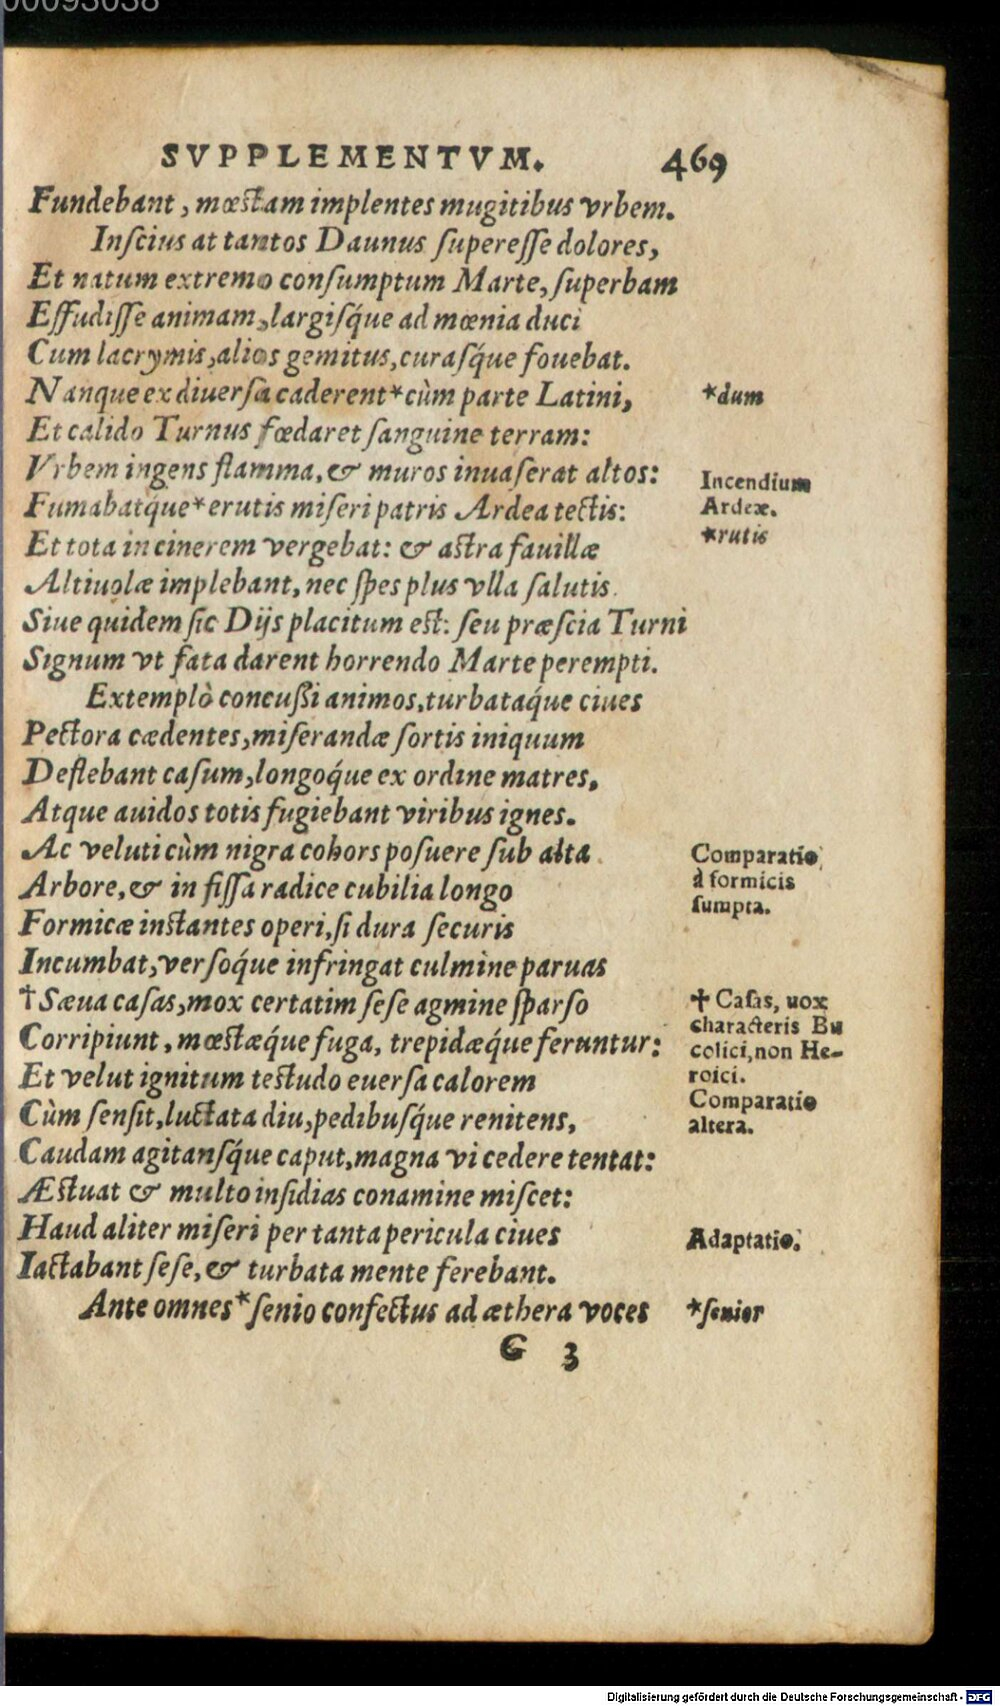 00093038
SVPPLEMENTVM. 469
Fundebant, mœstam implentes mugitibus vrbem.
Inſcius at tantos Daunus ſupereſſe dolores,
Et natum extremo conſumptum Marte, ſuperbam
Effudiſſe animam, largiſq́ue ad mœnia duci
Cum lacrymis, alios gemitus, curaſq́ue fouebat.
Nanque ex diuerſa caderent* cùm parte Latini, *dum
Et calido Turnus fœdaret ſanguine terram:
Vrbem ingens flamma, & muros inuaſerat altos:
Incendium
Fumabatq́ue* erutis miſeri patris Ardea tectis: Ardeæ.
*rutis
Et tota in cinerem vergebat: & astra fauillæ
Altiuolæ implebant, nec ſpes plus vlla ſalutis.
Siue quidem ſic Dijs placitum est: ſeu præſcia Turni
Signum vt fata darent horrendo Marte perempti.
Extemplò concußi animos, turbataq́ue ciues
Pectora cædentes, miſerandæ ſortis iniquum
Deflebant caſum, longoq́ue ex ordine matres,
Atque auidos totis fugiebant viribus ignes.
Ac veluti cùm nigra cohors poſuere ſub alta Comparatio
Arbore, & in fiſſa radice cubilia longo à formicis
Formicæ instantes operi, ſi dura ſecuris ſumpta.
Incumbat, verſoq́ue infringat culmine paruas
†Sæua caſas, mox certatim ſeſe agmine ſparſo † Caſas, uox
characteris Bu
Corripiunt, mœstæq́ue fuga, trepidæq́ue feruntur: colici, non He-
roici.
Et velut ignitum testudo euerſa calorem Comparatio
Cùm ſenſit, luctata diu, pedibuſq́ue renitens, altera.
Caudam agitanſq́ue caput, magna vi cedere tentat:
Æstuat & multo inſidias conamine miſcet:
Haud aliter miſeri per tanta pericula ciues Adaptatio.
Iactabant ſeſe, & turbata mente ferebant.
Ante omnes* ſenio confectus ad æthera voces *ſenior
G 3
Digitalisierung gefördert durch die Deutsche Forschungsgemeinschaft - DFG